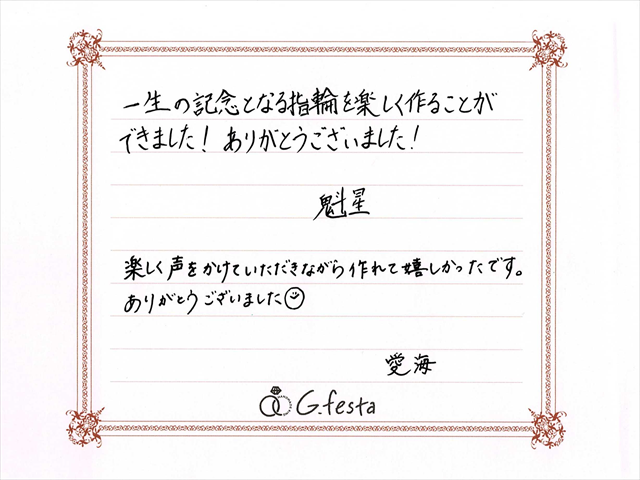 一生の記念となる指輪を楽しく作ることが
できました！ ありがとうございました！
魁星
楽しく声をかけていただきながら作れて嬉しかったです。
ありがとうございました
愛海
G.festa